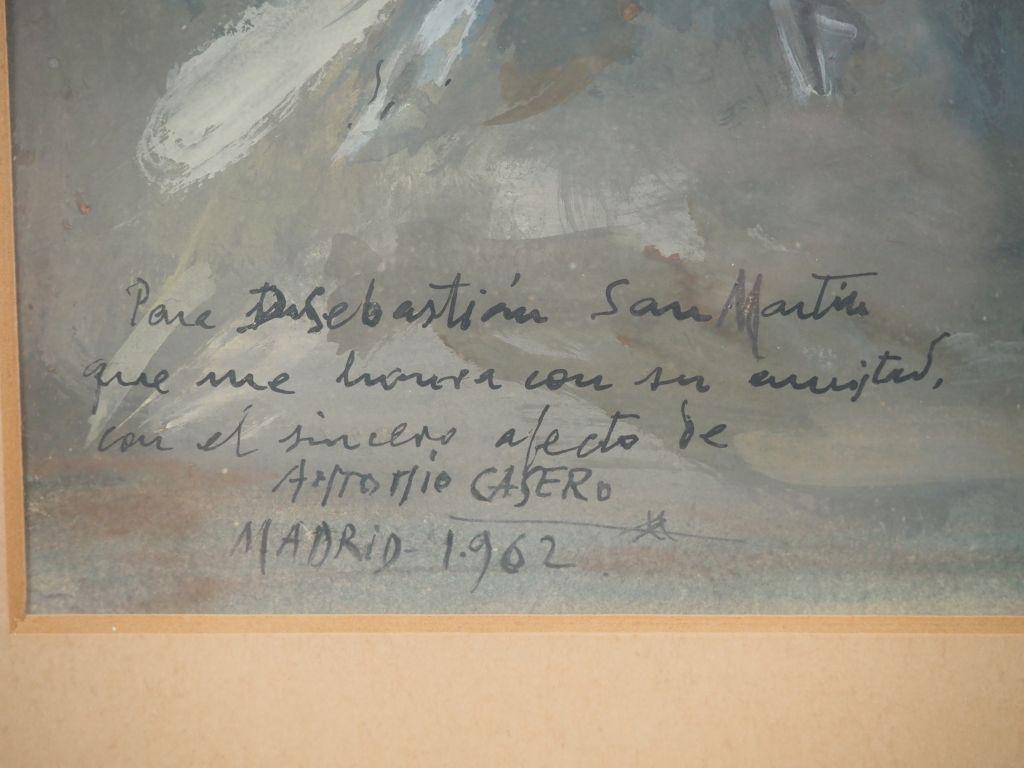 Para D. Sebastián San Martín
que me honra con su amistad,
con el sincero afecto de
Antonio CASERO
MADRID - 1.962